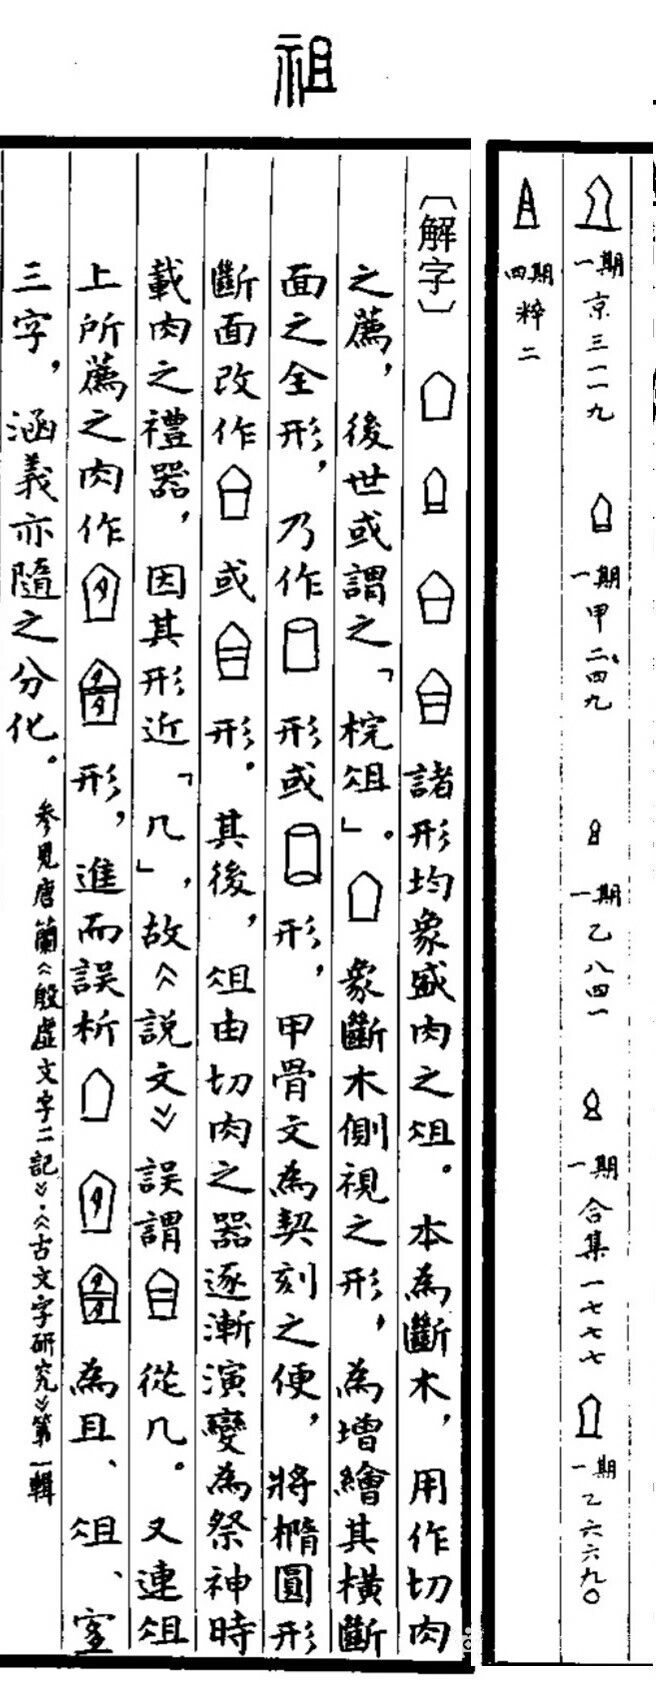 祖
一期 京三一一九
一期 甲二四九
一期 乙八四一
一期 合集一七七七
一期 乙六六九〇
四期 粹二
〔解字〕諸形均象盛肉之俎。本為斷木，用作切肉
之薦，後世或謂之「梡俎」。象斷木側視之形，為增繪其橫斷
面之全形，乃作形或形，甲骨文為契刻之便，將橢圓形
斷面改作或形。其後，俎由切肉之器逐漸演變為祭神時
載肉之禮器，因其形近「几」，故《說文》誤謂從几。又連俎
上所薦之肉作形，進而誤析為且、俎、宜
三字，涵義亦隨之分化。參見唐蘭《殷虛文字二記》·《古文字研究》第一輯